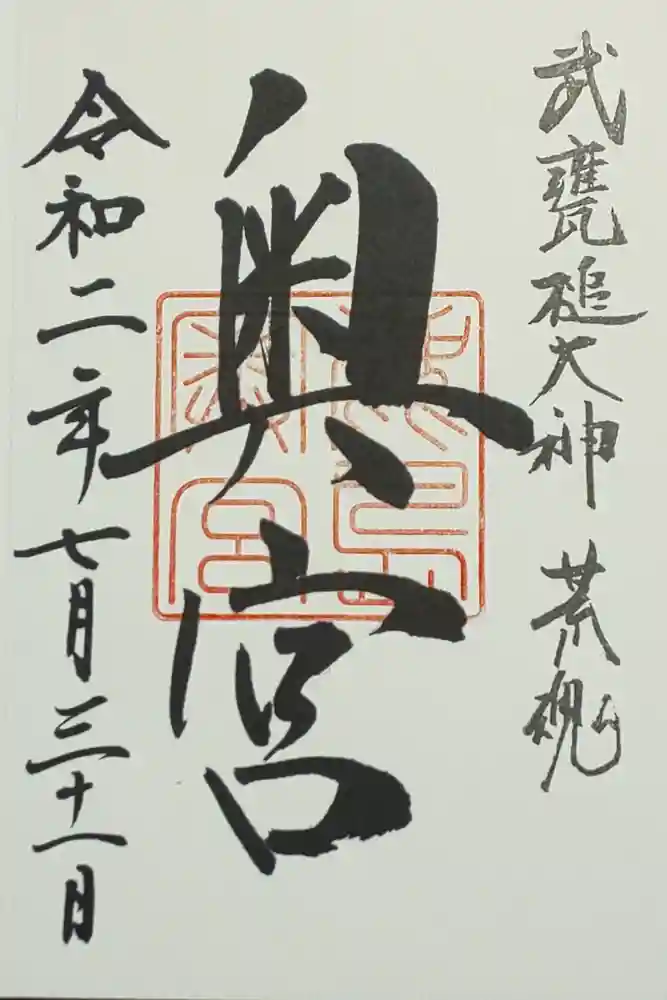 武甕槌大神 荒魂
奥宮
鹿島奥宮
令和二年七月三十一日